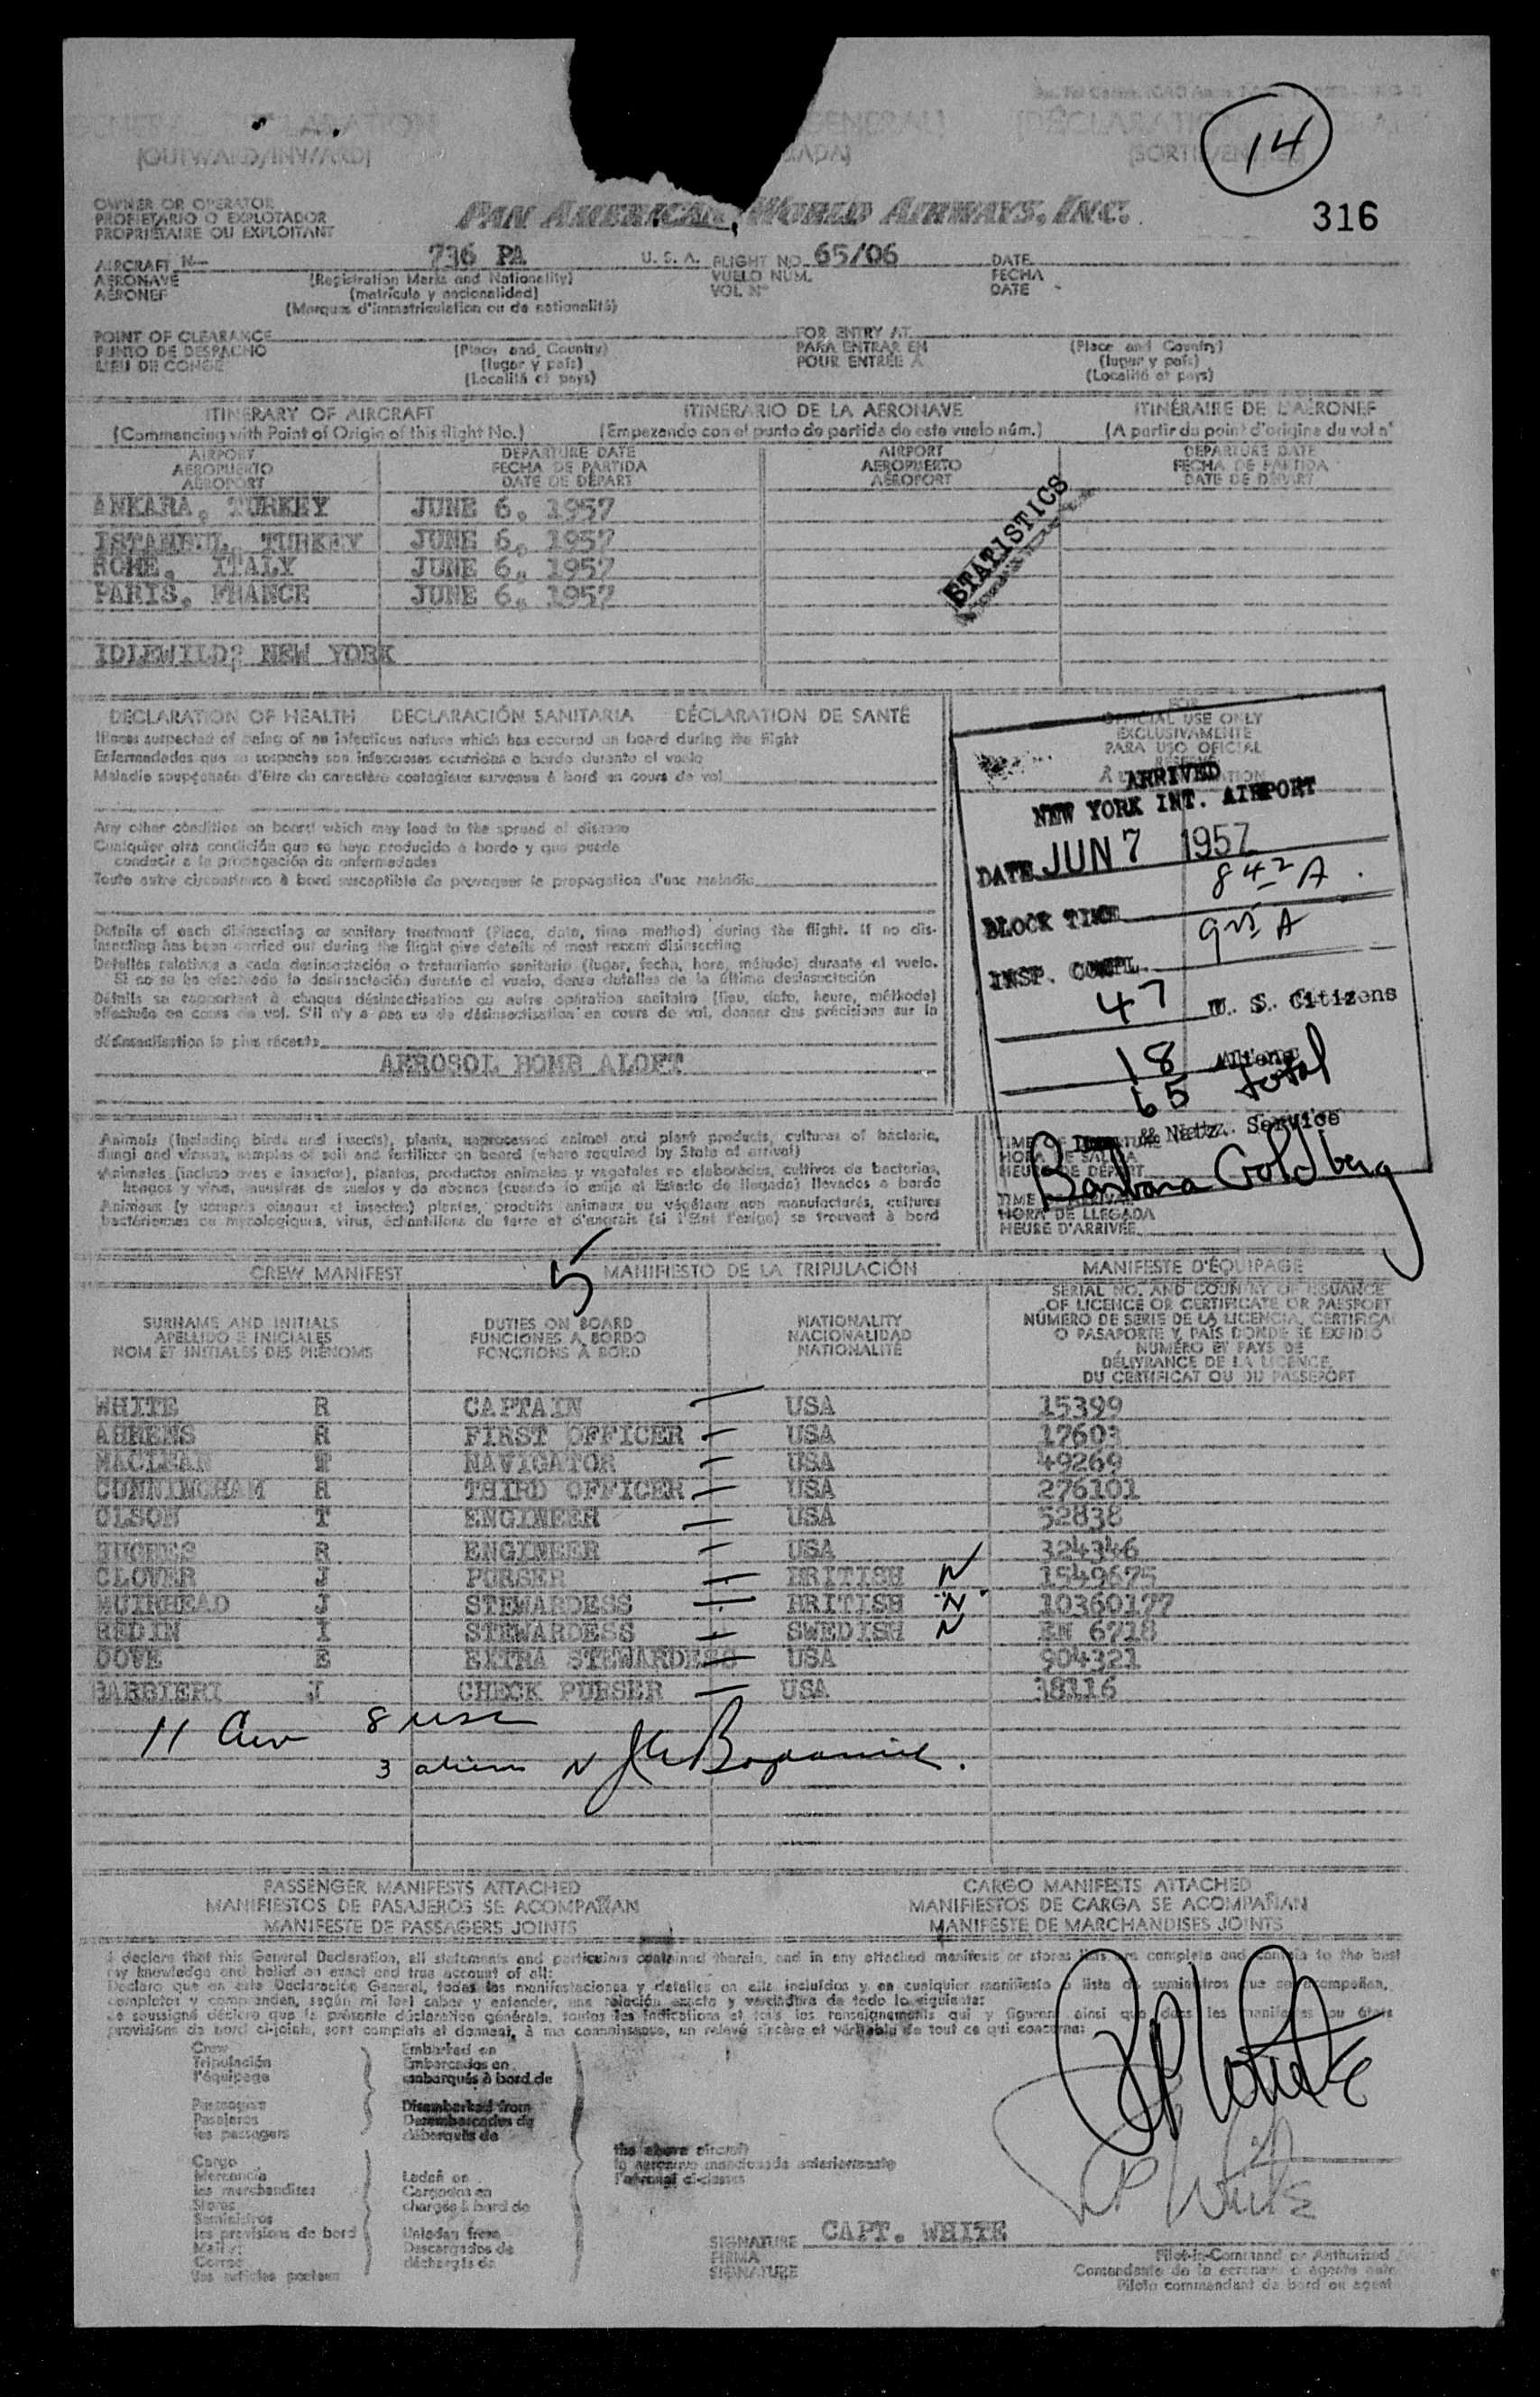 14
316
GENERAL DECLARATION
(OUTWARD/INWARD)
OWNER OR OPERATOR
PROPIETARIO O EXPLOTADOR
PROPRIÉTAIRE OU EXPLOITANT
PAN AMERICAN WORLD AIRWAYS, INC.
AIRCRAFT N— 736 PA U. S. A. FLIGHT NO. 65/06 DATE
AERONAVE (Registration Marks and Nationality) VUELO NUM. FECHA
AÉRONEF (matrícula y nacionalidad) VOL Nº DATE
(Marques d'immatriculation ou de nationalité)
POINT OF CLEARANCE FOR ENTRY AT
PUNTO DE DESPACHO (Place and Country) PARA ENTRAR EN (Place and Country)
LIEU DE CONGÉ (lugar y país) POUR ENTRÉE A (lugar y país)
(Localité et pays) (Localité et pays)
ITINERARY OF AIRCRAFT ITINERARIO DE LA AERONAVE ITINÉRAIRE DE L'AÉRONEF
(Commencing with Point of Origin of this flight No.) (Empezando con el punto de partida de este vuelo núm.) (A partir du point d'origine du vol nº
AIRPORT DEPARTURE DATE AIRPORT DEPARTURE DATE
AEROPUERTO FECHA DE PARTIDA AEROPUERTO FECHA DE PARTIDA
AÉROPORT DATE DE DÉPART AÉROPORT DATE DE DÉPART
ANKARA, TURKEY JUNE 6, 1957
ISTANBUL, TURKEY JUNE 6, 1957
ROME, ITALY JUNE 6, 1957
PARIS, FRANCE JUNE 6, 1957
STATISTICS
IDLEWILD, NEW YORK
DECLARATION OF HEALTH DECLARACIÓN SANITARIA DÉCLARATION DE SANTÉ
Illness suspected of being of an infectious nature which has occured on board during the flight
Enfermedades que se sospecha son infecciosas ocurridas a bordo durante el vuelo
Maladie soupçonnée d'être de caractère contagieux survenue à bord en cours de vol
Any other condition on board which may lead to the spread of disease
Cualquier otra condición que se haya producido a bordo y que puede
conducir a la propagación de enfermedades
Toute autre circonstance à bord susceptible de provoquer la propagation d'une maladie
Details of each disinsecting or sanitary treatment (Place, date, time method) during the flight. If no dis-
insecting has been carried out during the flight give details of most recent disinsecting
Detalles relativos a cada desinsectación o tratamiento sanitario (lugar, fecha, hora, método) durante el vuelo.
Si no se ha efectuado la desinsectación durante el vuelo, dense detalles de la última desinsectación
Détails se rapportant à chaque désinsectisation ou autre opération sanitaire (lieu, date, heure, méthode)
effectuée en cours de vol. S'il n'y a pas eu de désinsectisation en cours de vol, donner des précisions sur la
désinsectisation la plus récente
AEROSOL BOMB ALOFT
FOR
OFFICIAL USE ONLY
EXCLUSIVAMENTE
PARA USO OFICIAL
ARRIVED
NEW YORK INT. AIRPORT
DATE JUN 7 1957
BLOCK TIME 842 A
INSP. COMPL. 915 A
47 U. S. Citizens
18 Aliens
65 total
& Natz. Service
Barbara Goldberg
Animals (including birds and insects), plants, unprocessed animal and plant products, cultures of bacteria,
fungi and viruses, samples of soil and fertilizer on board (where required by State of arrival)
Animales (incluso aves e insectos), plantas, productos animales y vegetales no elaborados, cultivos de bacterias,
hongos y virus, muestras de suelos y de abonos (cuando lo exija el Estado de llegada) llevados a bordo
Animaux (y compris oiseaux et insectes) plantes, produits animaux ou végétaux non manufacturés, cultures
bactériennes ou mycologiques, virus, échantillons de terre et d'engrais (si l'État l'exige) se trouvant à bord
HORA DE SALIDA
HEURE DE DÉPART
HORA DE LLEGADA
HEURE D'ARRIVÉE
5
CREW MANIFEST MANIFIESTO DE LA TRIPULACIÓN MANIFESTE D'ÉQUIPAGE
SURNAME AND INITIALS DUTIES ON BOARD NATIONALITY SERIAL NO. AND COUNTRY OF ISSUANCE
APELLIDO E INICIALES FUNCIONES A BORDO NACIONALIDAD OF LICENCE OR CERTIFICATE OR PASSPORT
NOM ET INITIALES DES PRÉNOMS FONCTIONS A BORD NATIONALITÉ NÚMERO DE SERIE DE LA LICENCIA, CERTIFICA
O PASAPORTE Y PAÍS DONDE SE EXPIDIÓ
NUMÉRO ET PAYS DE
DÉLIVRANCE DE LA LICENCE
DU CERTIFICAT OU DU PASSEPORT
WHITE R CAPTAIN USA 15399
AHRENS R FIRST OFFICER USA 17603
MACLEAN W NAVIGATOR USA 49269
CUNNINGHAM R THIRD OFFICER USA 276101
OLSON T ENGINEER USA 52838
HUGHES R ENGINEER USA 324346
CLOVER J PURSER BRITISH N 1549675
MUIRHEAD J STEWARDESS BRITISH N 10360177
REDIN I STEWARDESS SWEDISH N EN 6718
DOVE E EXTRA STEWARDESS USA 904321
BARBIERI J CHECK PURSER USA 38116
11 Crew 8 usc
3 aliens N
PASSENGER MANIFESTS ATTACHED CARGO MANIFESTS ATTACHED
MANIFIESTOS DE PASAJEROS SE ACOMPAÑAN MANIFIESTOS DE CARGA SE ACOMPAÑAN
MANIFESTE DE PASSAGERS JOINTS MANIFESTE DE MARCHANDISES JOINTS
I declare that this General Declaration, all statements and particulars contained therein, and in any attached manifests or stores lists are complete and contain to the best
my knowledge and belief an exact and true account of all:
Declaro que en esta Declaración General, todas las manifestaciones y detalles en ella incluídos y en cualquier manifiesto o lista de suministros que se acompañan,
completos y comprenden, según mi leal saber y entender, una relación exacta y verdadera de todo lo siguiente:
Je soussigné déclare que la présente déclaration générale, toutes les indications et tous les renseignements qui y figurent ainsi que dans les manifestes ou états
provisions de bord ci-joints, sont complets et donnent, à ma connaissance, un relevé sincère et véritable de tout ce qui concerne:
Crew Embarked on
Tripulación Embarcados en
l'équipage embarqués à bord de
Passengers Disembarked from
Pasajeros Desembarcados de
les passagers débarqués de
the above aircraft
la aeronave mencionada anteriormente
l'aéronef ci-dessus
Cargo
Mercancía Laden on
les marchandises Cargados en
Stores chargés à bord de
Suministros
les provisions de bord Unladen from
Mail Descargados de
Correo déchargés de
les articles postaux
RP White
RP White
SIGNATURE CAPT. WHITE
FIRMA Pilot-in-Command or Authorized
SIGNATURE Comandante de la aeronave o agente
Pilote commandant de bord ou agent